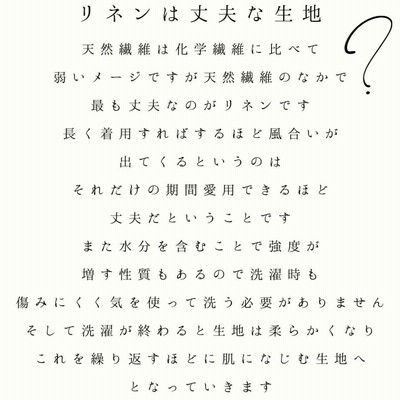 リネンは丈夫な生地
?
天然繊維は化学繊維に比べて
弱いメージですが天然繊維のなかで
最も丈夫なのがリネンです
長く着用すればするほど風合いが
出てくるというのは
それだけの期間愛用できるほど
丈夫だということです
また水分を含むことで強度が
増す性質もあるので洗濯時も
傷みにくく気を使って洗う必要がありません
そして洗濯が終わると生地は柔らかくなり
これを繰り返すほどに肌になじむ生地へ
となっていきます